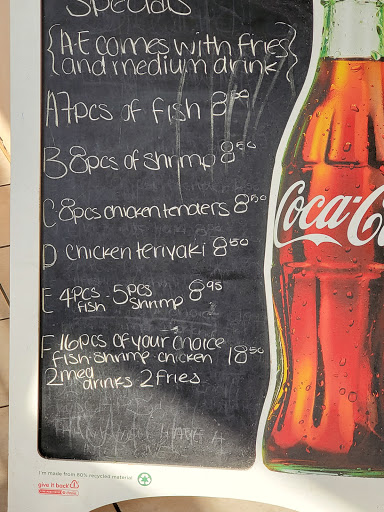 Specials
{A-E comes with fries
and medium drink}
A 7pcs of fish 8⁵⁰
B 8pcs of shrimp 8⁵⁰
C 8pcs chicken tenders 8⁵⁰
D chicken teriyaki 8⁵⁰
E 4pcs fish - 5pcs shrimp 8⁹⁵
F 16pcs of your choice
fish-shrimp chicken 18⁵⁰
2 med drinks 2 fries
Coca-C
I'm made from 80% recycled material
give it back